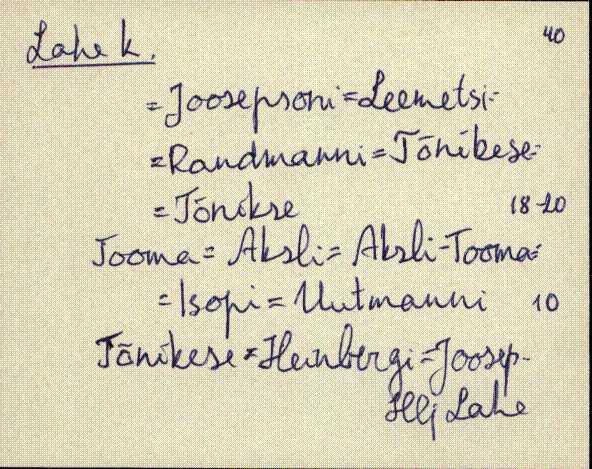 Lahe k. 40
= Joosepsoni = Leemetsi-
= Randmanni = Tõnikese-
= Tõnikse 18-20
Tooma = Aksli = Aksli-Tooma=
= Isopi = Uutmanni 10
Tõnikese = Heinbergi = Joosep-
Hlj Lahe